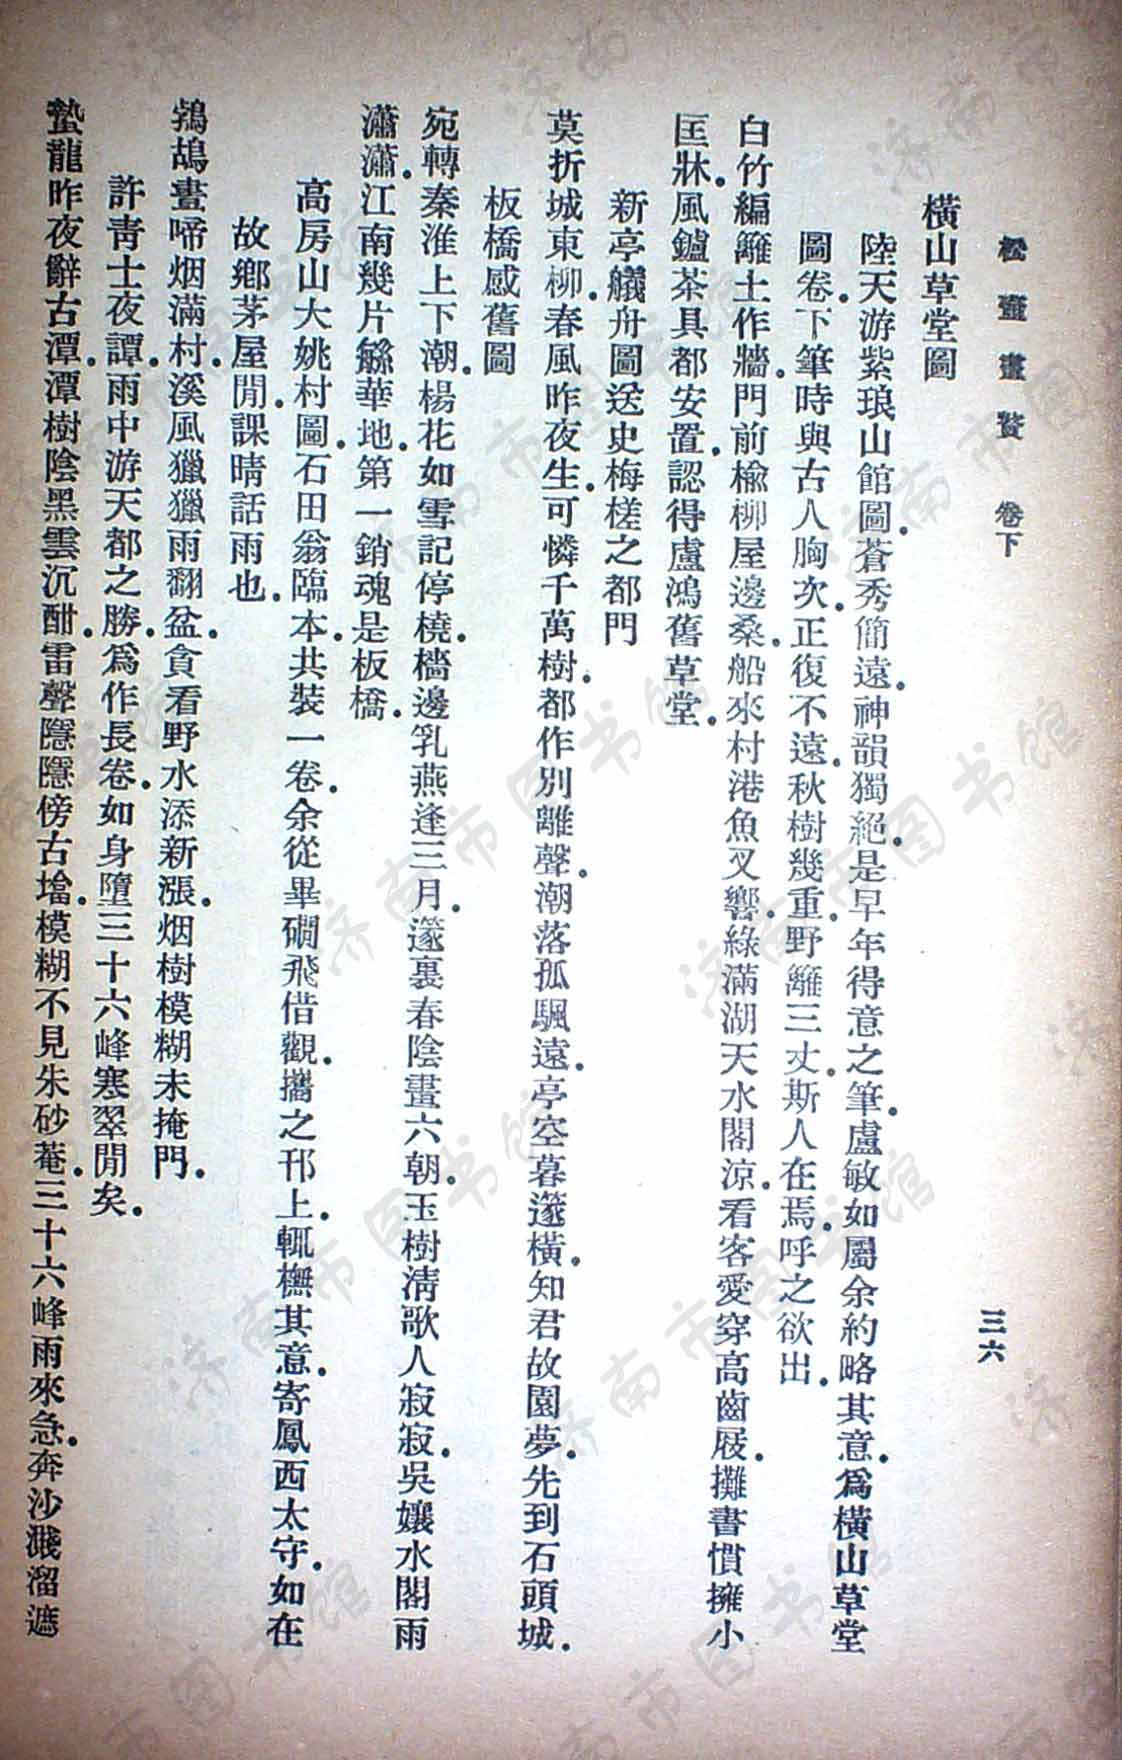 松壺畫贅 卷下
三六
橫山草堂圖
陸天游紫琅山館圖.蒼秀簡遠.神韻獨絕.是早年得意之筆.盧敏如屬余約略其意.爲橫山草堂
圖卷.下筆時與古人胸次.正復不遠.秋樹幾重.野籬三丈.斯人在焉.呼之欲出.
白竹編籬土作牆.門前楡柳屋邊桑.船來村港魚叉響.綠滿湖天水閣涼.看客愛穿高齒屐.攤書慣擁小
匡牀.風鑪茶具都安置.認得盧鴻舊草堂.
新亭艤舟圖送史梅槎之都門
莫折城東柳.春風昨夜生.可憐千萬樹.都作別離聲.潮落孤颿遠.亭空暮邃橫.知君故園夢.先到石頭城.
板橋感舊圖
宛轉秦淮上下潮.楊花如雪記停橈.檣邊乳燕逢三月.邃裏春陰畫六朝.玉樹淸歌人寂寂.吳孃水閣雨
瀟瀟.江南幾片緐華地.第一銷魂是板橋.
高房山大姚村圖.石田翁臨本.共裝一卷.余從畢磵飛借觀.攜之邗上.輒橅其意.寄鳳西太守.如在
故鄕茅屋閒.課晴話雨也.
鵓鴣晝啼烟滿村.溪風獵獵雨翻盆.貪看野水添新漲.烟樹模糊未掩門.
許靑士夜譚.雨中游天都之勝.爲作長卷.如身墮三十六峰寒翠閒矣.
蟄龍昨夜辭古潭.潭樹陰黑雲沉酣.雷聲隱隱傍古壋.模糊不見朱砂菴.三十六峰雨來急.奔沙濺溜遮
濟南市图书馆